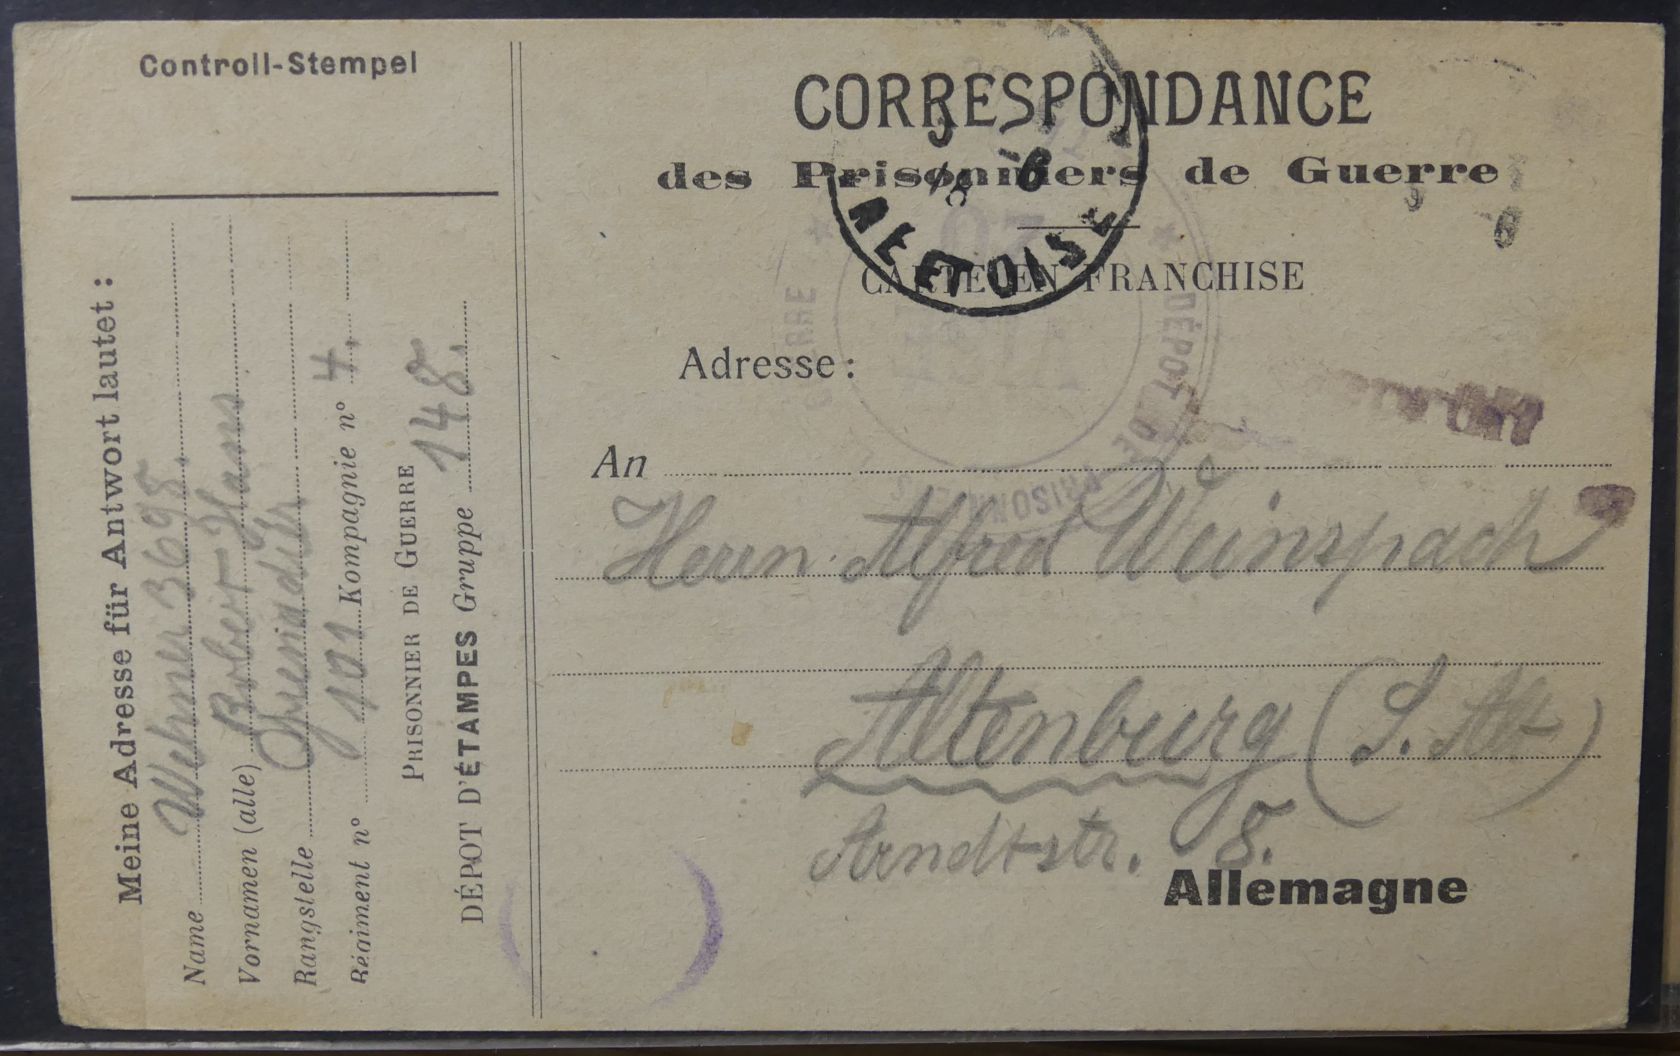 Controll-Stempel
Meine Adresse für Antwort lautet :
Name Wehner 3695.
Vornamen (alle) Robert Hans
Rangstelle
Régiment n° 101 Kompagnie n° 4.
PRISONNIER DE GUERRE
DÉPOT D'ÉTAMPES Gruppe 148.
CORRESPONDANCE
des Prisonniers de Guerre
CARTE EN FRANCHISE
Adresse :
An
Herrn Alfred Weinspach
Altenburg (S. Alt)
Arndtstr. 8.
Allemagne
ET OISE
* DÉPOT DE PRISONNIERS
GUERRE *